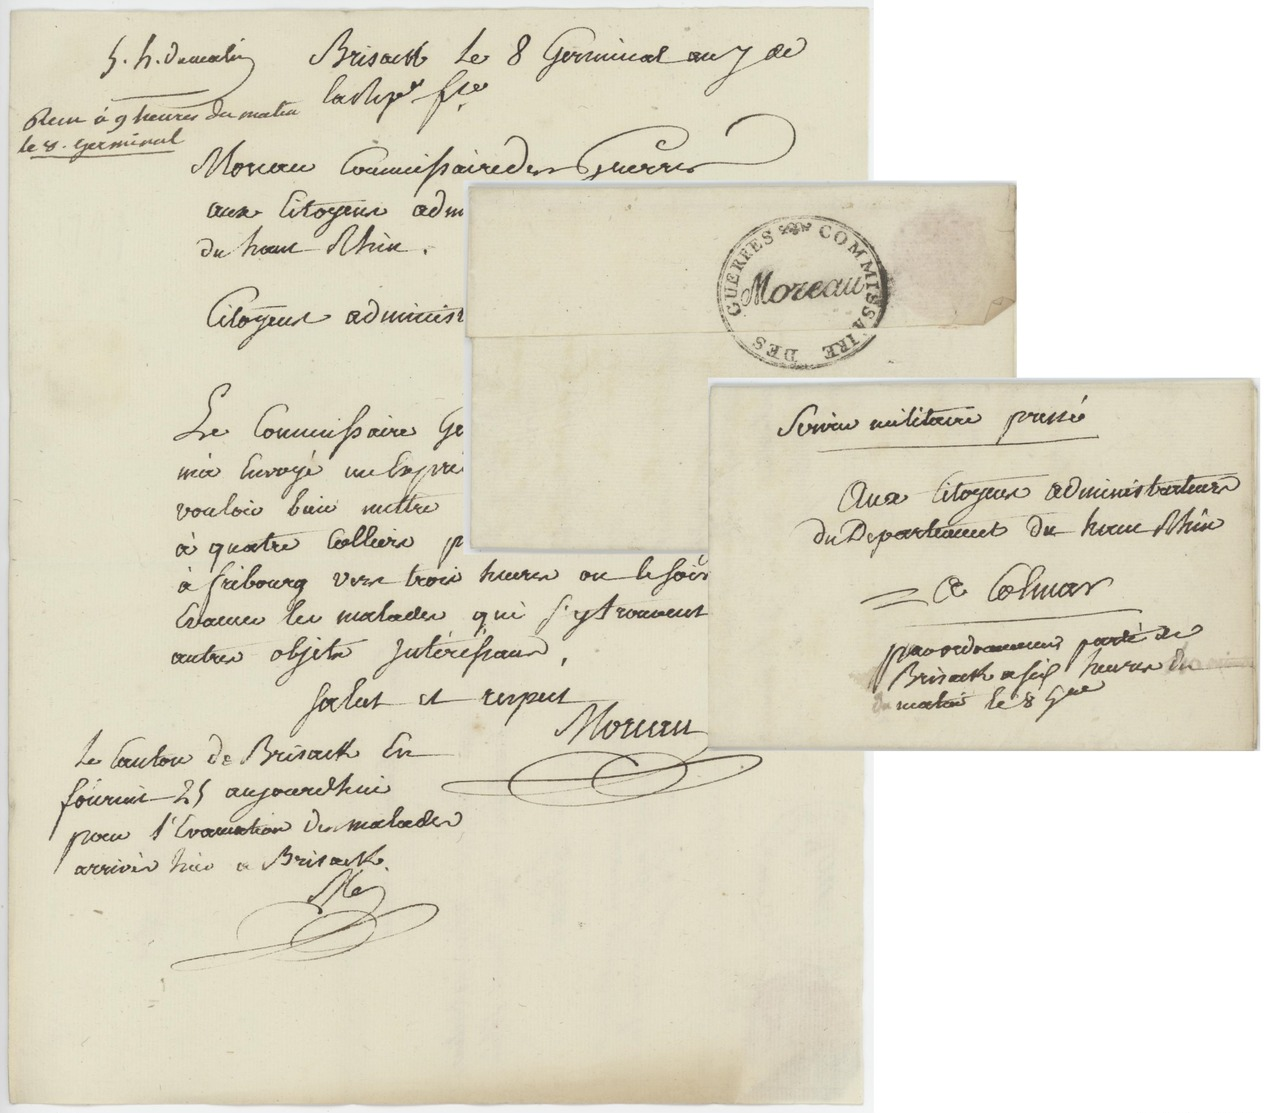 5. h. du matin
Brisack le 8 Germinal an 7 de
la Rep.e f.se
Recu à 9 heures du matin
le 8. Germinal
Moreau Commissaire des Guerres
aux Citoyens adm
du haut Rhin.
Citoyens administ
Le Commissaire Ge
m'a Envoyé un Exprè
vouloir bien mettre
à quatre Colliers p
à fribourg vers trois heures ou le soir
Evacuer les malades qui s'y trouvent
autres objets Intéréssans,
salut et respect
Moreau
Le Canton de Brisack En
fournit 25 aujourdhui
pour l'Evacuation des malades
arrivés hier a Brisack.
COMMISSAIRE DES GUERRES
Moreau
Service militaire pressé
Aux Citoyens administrateurs
du Departement du haut Rhin
A Colmar
par ordonnance parti de
Brisack a six heures du
matin le 8 g.nal